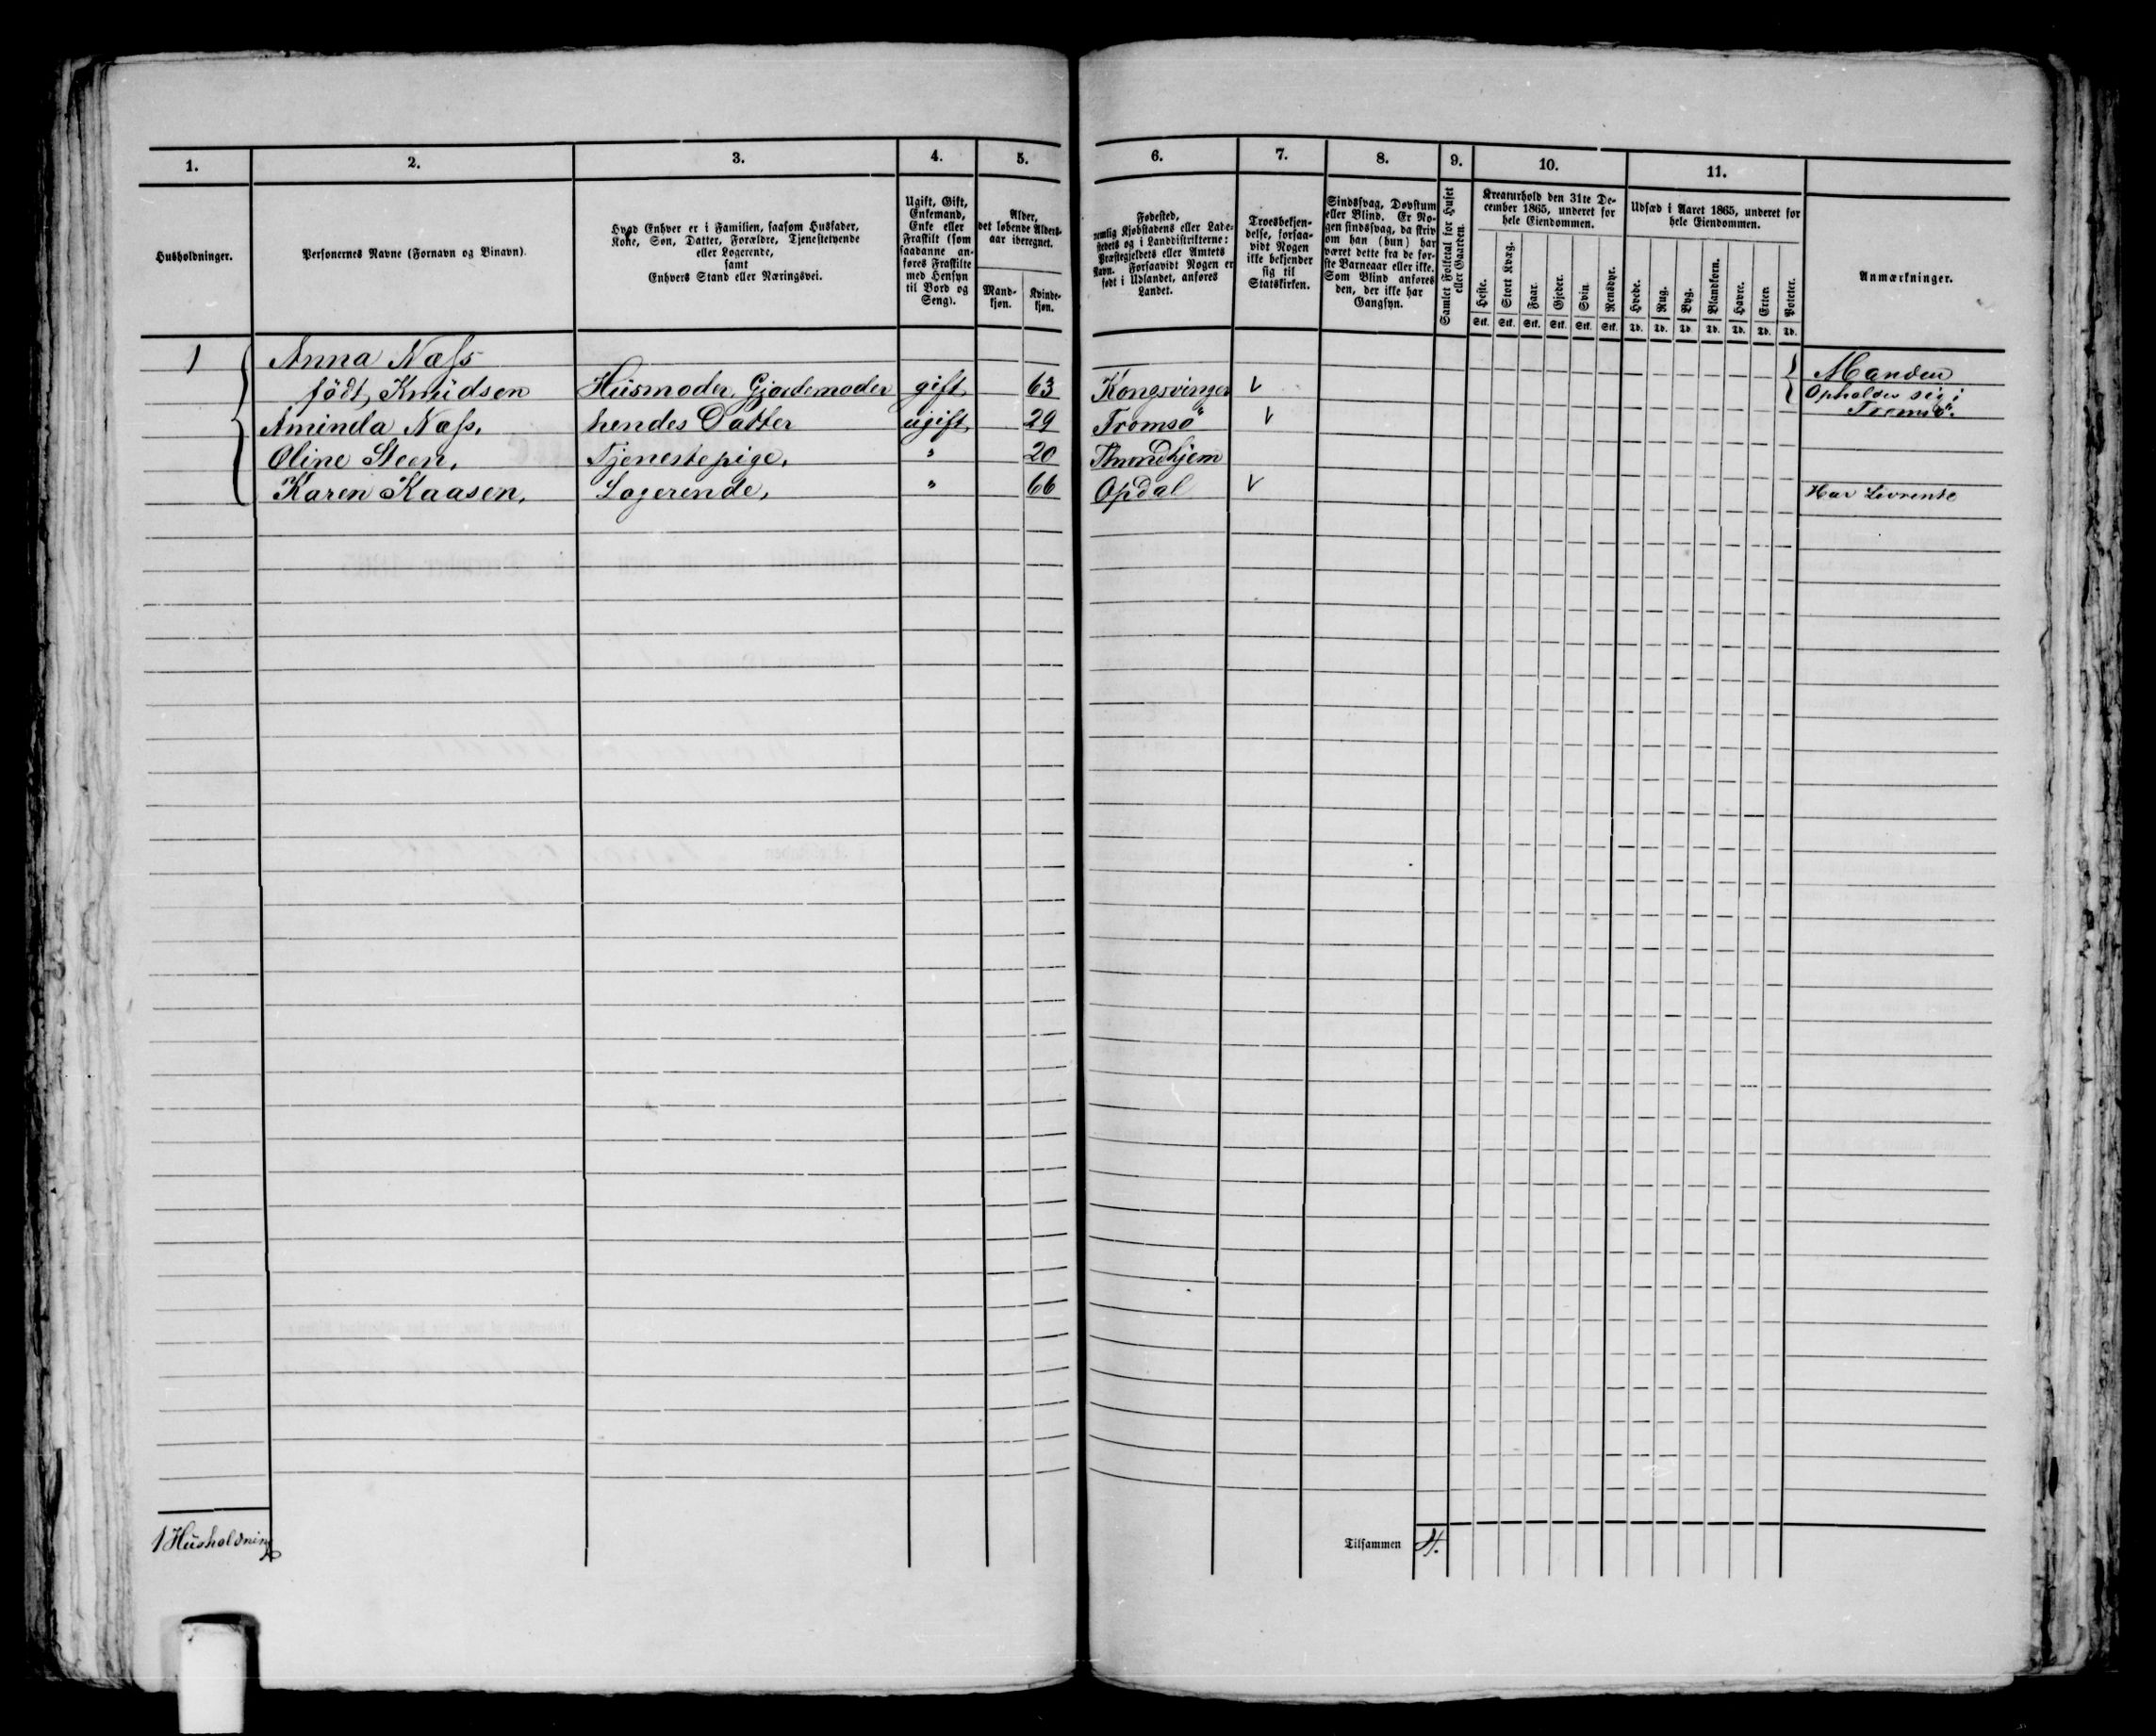 1. 2. 3. 4. 5. 6. 7. 8. 9. 10. 11.
Husholdninger.
Personernes Navne (Fornavn og Binavn).
Hvad Enhver er i Familien, saasom Husfader,
Kone, Søn, Datter, Forældre, Tjenestetyende
eller Logerende,
samt
Enhvers Stand eller Næringsvei.
Ugift, Gift,
Enkemand,
Enke eller
Fraskilt (som
saadanne an-
føres Fraskilte
med Hensyn
til Bord og
Seng).
Alder,
det løbende Alders-
aar iberegnet.
Mand-
kjøn.
Kvinde-
kjøn.
Fødested,
nemlig Kjøbstadens eller Lade-
stedets og i Landdistrikterne:
Præstegjeldets eller Amtets
Navn. Forsaavidt Nogen er
født i Udlandet, anføres
Landet.
Troesbekjen-
delse, forsaa-
vidt Nogen
ikke bekjender
sig til
Statskirken.
Sindssvag, Døvstum
eller Blind. Er No-
gen sindssvag, da skriv
om han (hun) har
været dette fra de før-
ste Barneaar eller ikke.
Som Blind anføres
den, der ikke har
Gangsyn.
Samlet Folketal for Huset
eller Gaarden.
Kreaturhold den 31te De-
cember 1865, underet for
hele Eiendommen.
Heste. Stort Kvæg. Faar. Gjeder. Svin. Rensdyr.
Stk. Stk. Stk. Stk. Stk. Stk.
Udsæd i Aaret 1865, underet for
hele Eiendommen.
Hvede. Rug. Byg. Blandkorn. Havre. Erter. Poteter.
Td. Td. Td. Td. Td. Td. Td.
Anmærkninger.
1 Anna Næss Manden
født Knudsen Husmoder, Gjordemoder gift 63 Kongsvinger Opholder sig i
Aminda Næss. hendes Datter ugift 29 Tromsø Tromsø.
Oline Steen, Tjenestepige, " 20 Throndhjem
Karen Kaasen, Logerende, " 66 Opdal Har Livrente
1 Husholdning Tilsammen 4.